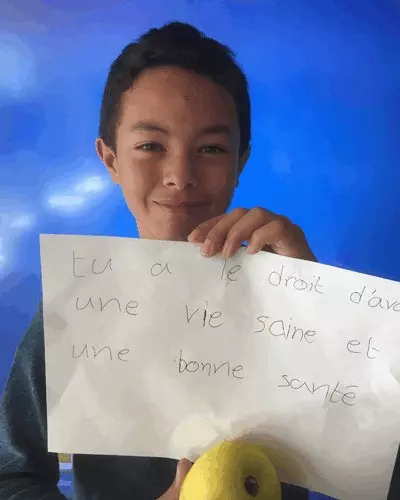 tu a le droit d'avo
une vie saine et
une bonne santé